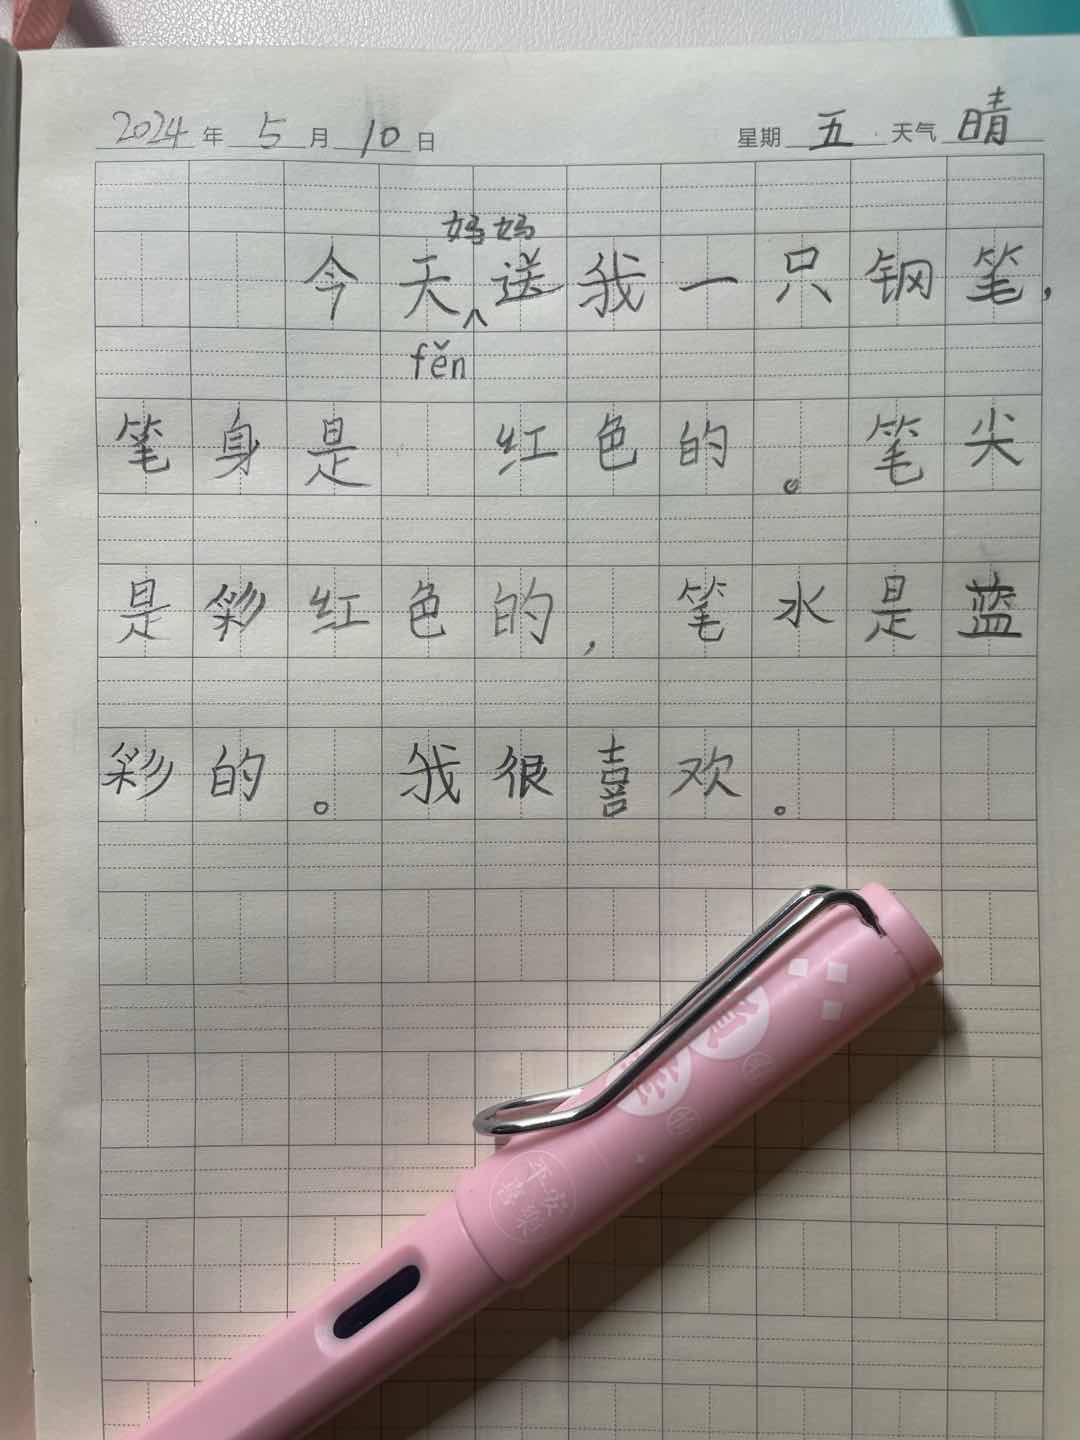 2024年5月10日 星期五 天气晴
妈妈
今天^送我一只钢笔，
fěn
笔身是 红色的。笔尖
是彩红色的，笔水是蓝
彩的。我很喜欢。
平安
喜樂